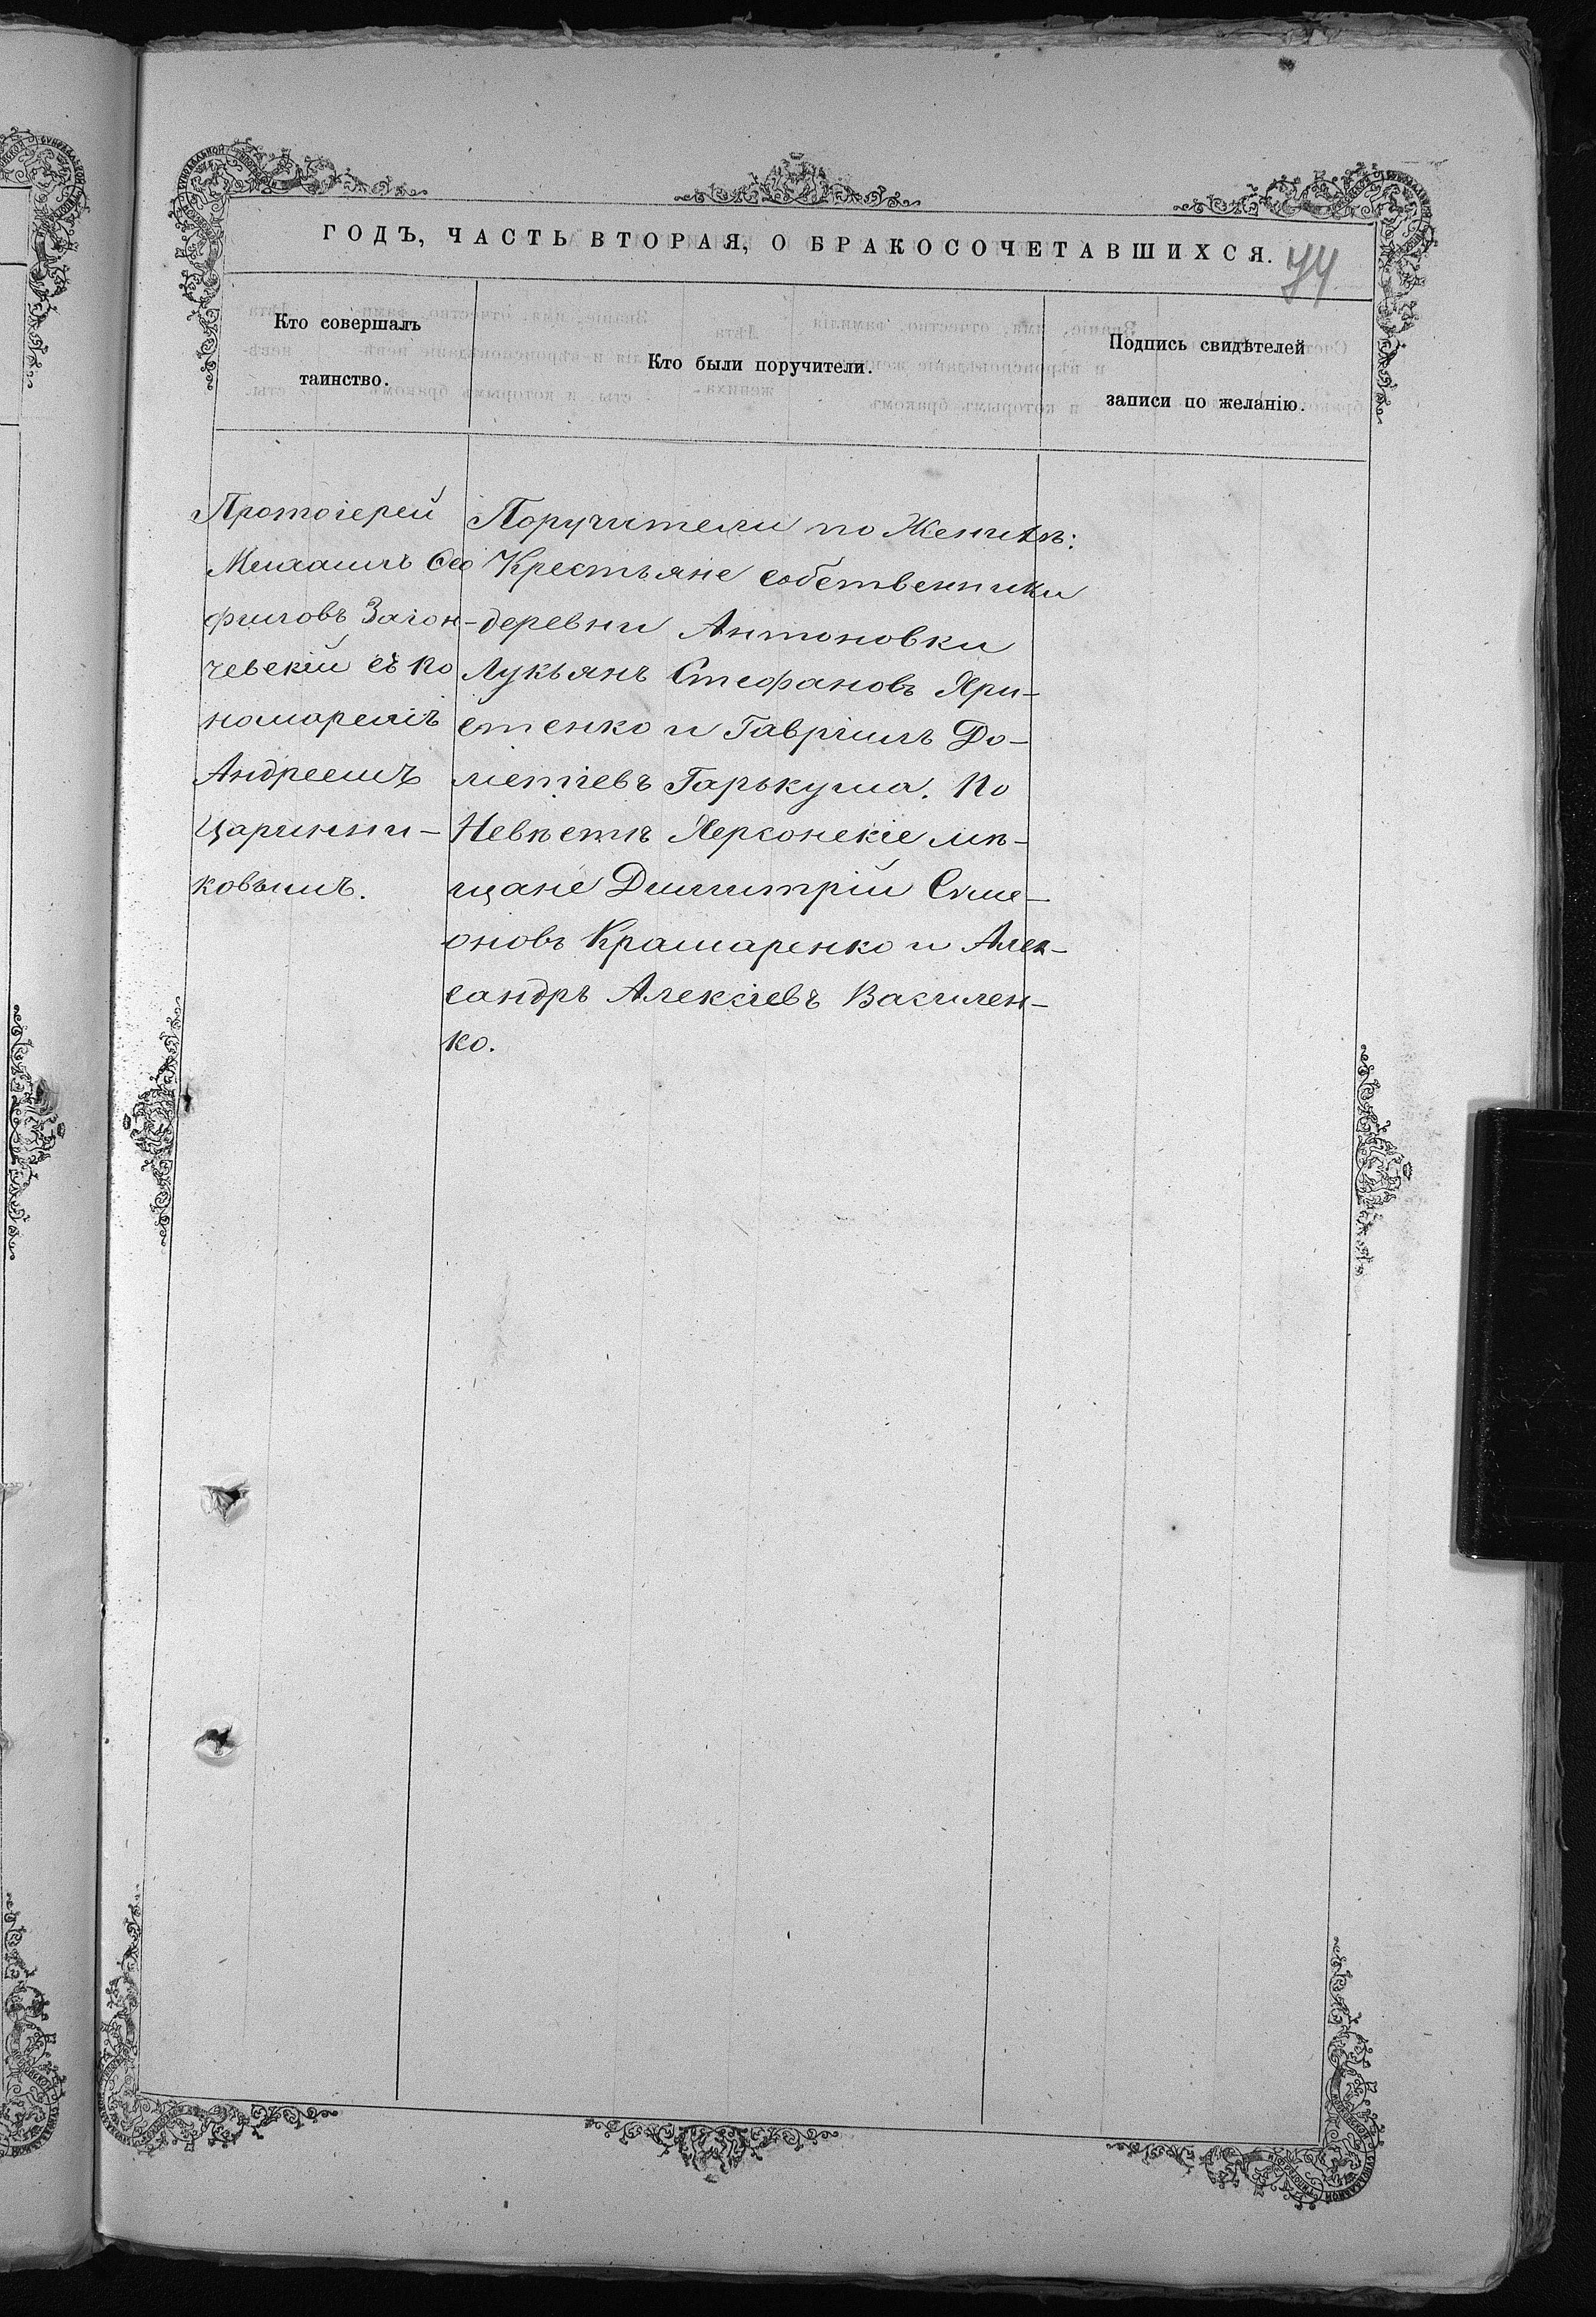 ГОДЪ, ЧАСТЬ ВТОРАЯ, О БРАКОСОЧЕТАВШИХСЯ.
74
Кто совершалъ
таинство.
Кто были поручители.
Подпись свидѣтелей
записи по желанію.
Протоіерей
Михаилъ Ѳео
филовъ Загон-
чевскій съ по
номаремъ
Андреемъ
Царинни-
ковымъ.
Поручители по Женихѣ:
Крестьяне собственники
деревни Антоновки
Лукьянъ Стефановъ Хри-
стенко и Гавріилъ До-
метіевъ Гарькуша. По
Невѣстѣ Херсонскіе мѣ-
щане Димитрій Симе-
оновъ Крамаренко и Алек-
сандръ Алексіевъ Василен-
ко.